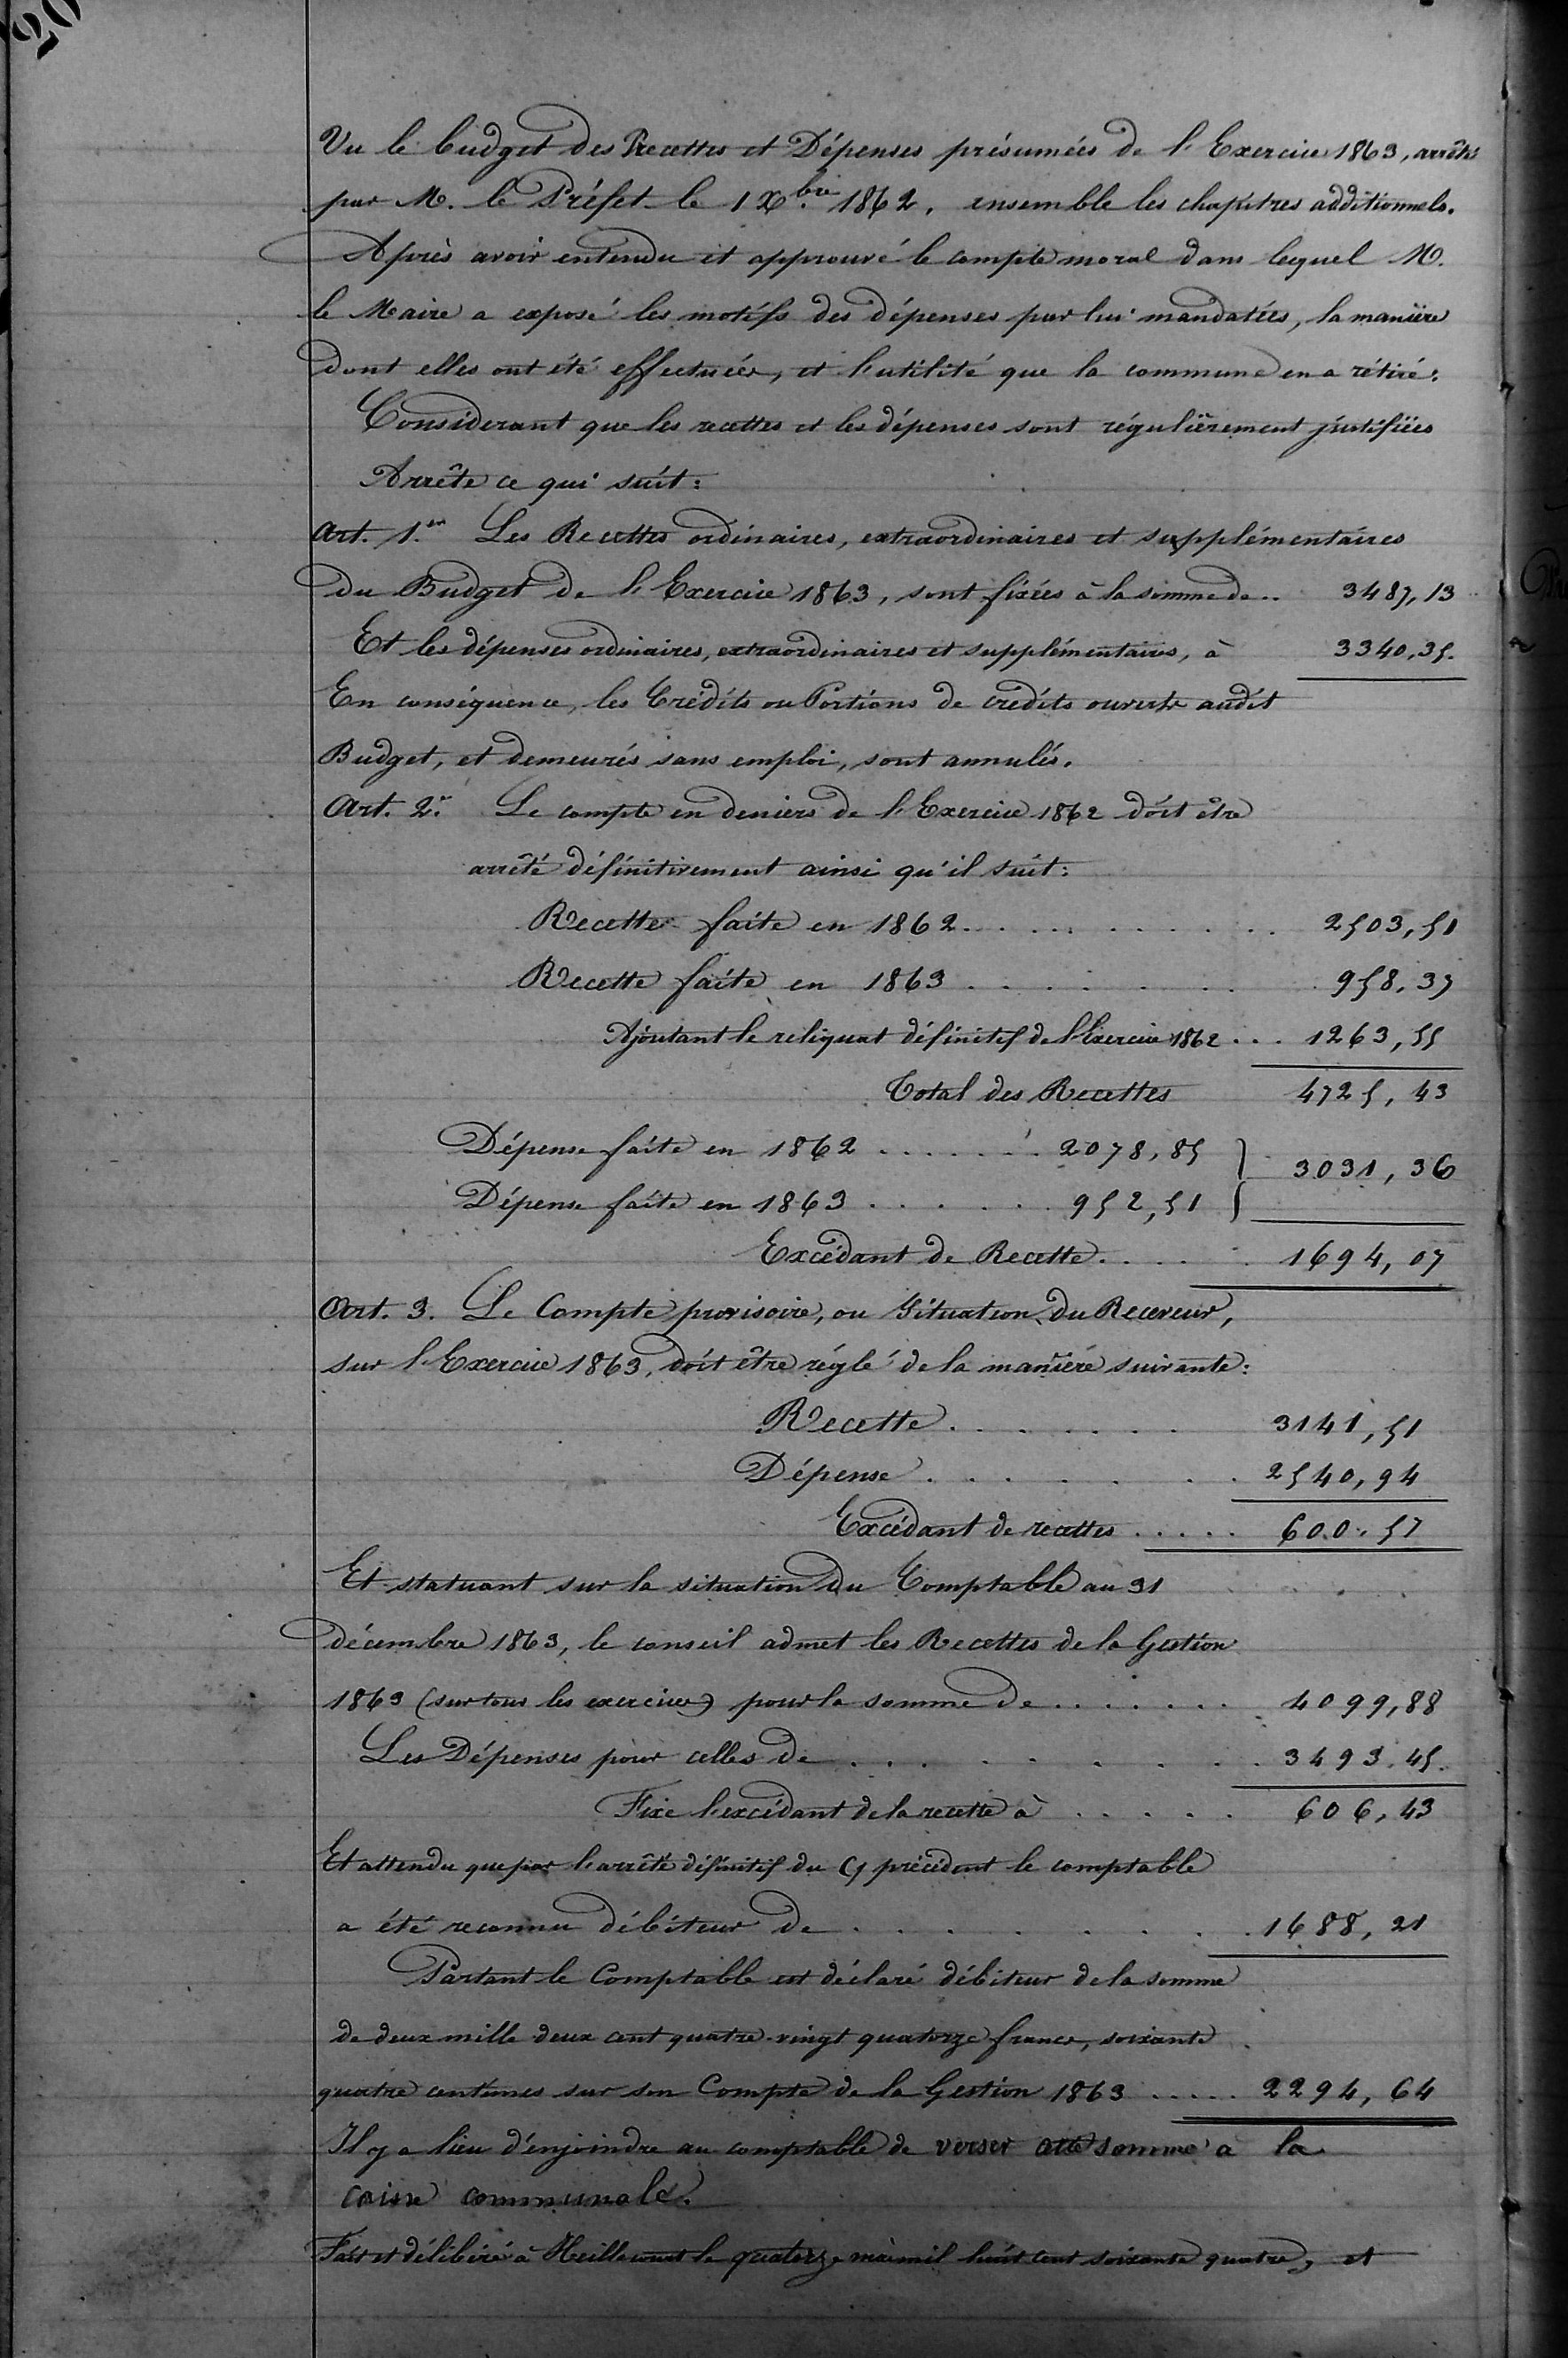 20
Vu le budget des Recettes et Dépenses présumées de l'Exercice 1863, arrêtés
par M. le Préfet le 1 Xbre 1862, ensemble les chapitres additionnels.
Après avoir entendu et approuvé le compte moral dans lequel M.
le Maire a exposé les motifs des dépenses par lui mandatées, la manière
dont elles ont été effectuées, et l'utilité que la commune en a rétiré:
Considerant que les recettes et les dépenses sont régulièrement justifiées
Arrête ce qui suit:
Art. 1er Les Recettes ordinaires, extraordinaires et supplémentaires
du Budget de l'Exercice 1863, sont fixées à la somme de .. 3487,13
Et les dépenses ordinaires, extraordinaires et supplémentaires, à 3340,35.
En conséquence, les Crédits ou Portions de crédits ouverts audit
Budget, et demeurés sans emploi, sont annulés.
Art. 2. Le compte en deniers de l'Exercice 1862 doit être
arrêté définitivement ainsi qu'il suit:
Recette faite en 1862 . . . . . . . . . 2503,51
Recette faite en 1863 . . . . . . 958,37
Ajoutant le reliquat définitif de l'Exercice 1862 ... 1263,55
Total des Recettes 4725,43
Dépense faite en 1862 . . . . . . . 2078,85 } 3031,36
Dépense faite en 1863 . . . . . . 952,51
Excédant de Recette . . . . 1694,07
Art. 3. Le Compte provisoire, ou Situation du Receveur,
sur l'Exercice 1863, doit être réglé de la manière suivante:
Recette . . . . . . 3141,51
Dépense . . . . . . 2540,94
Excédant de recettes ..... 600,57
Et statuant sur la situation du Comptable au 31
décembre 1863, le conseil admet les Recettes de la Gestion
1863 (sur tous les exercices) pour la somme de . . . . . . . 4099,88
Les Dépenses pour celles de . . . . . . . . 3493,45.
Fixe l'excédant de la recette à . . . . . 606,43
Et attendu que par l'arrêté définitif du précédent le comptable
a été reconnu débiteur de . . . . . . . . 1688,21
Partant le Comptable est déclaré débiteur de la somme
de deux mille deux cent quatre-vingt quatorze francs, soixante
quatre centimes sur son Compte de la Gestion 1863 ..... 2294,64
Il y a lieu d'enjoindre au comptable de verser cette somme à la
caisse communale.
Fait et délibéré à le quatorze mai mil huit cent soixante quatre, et